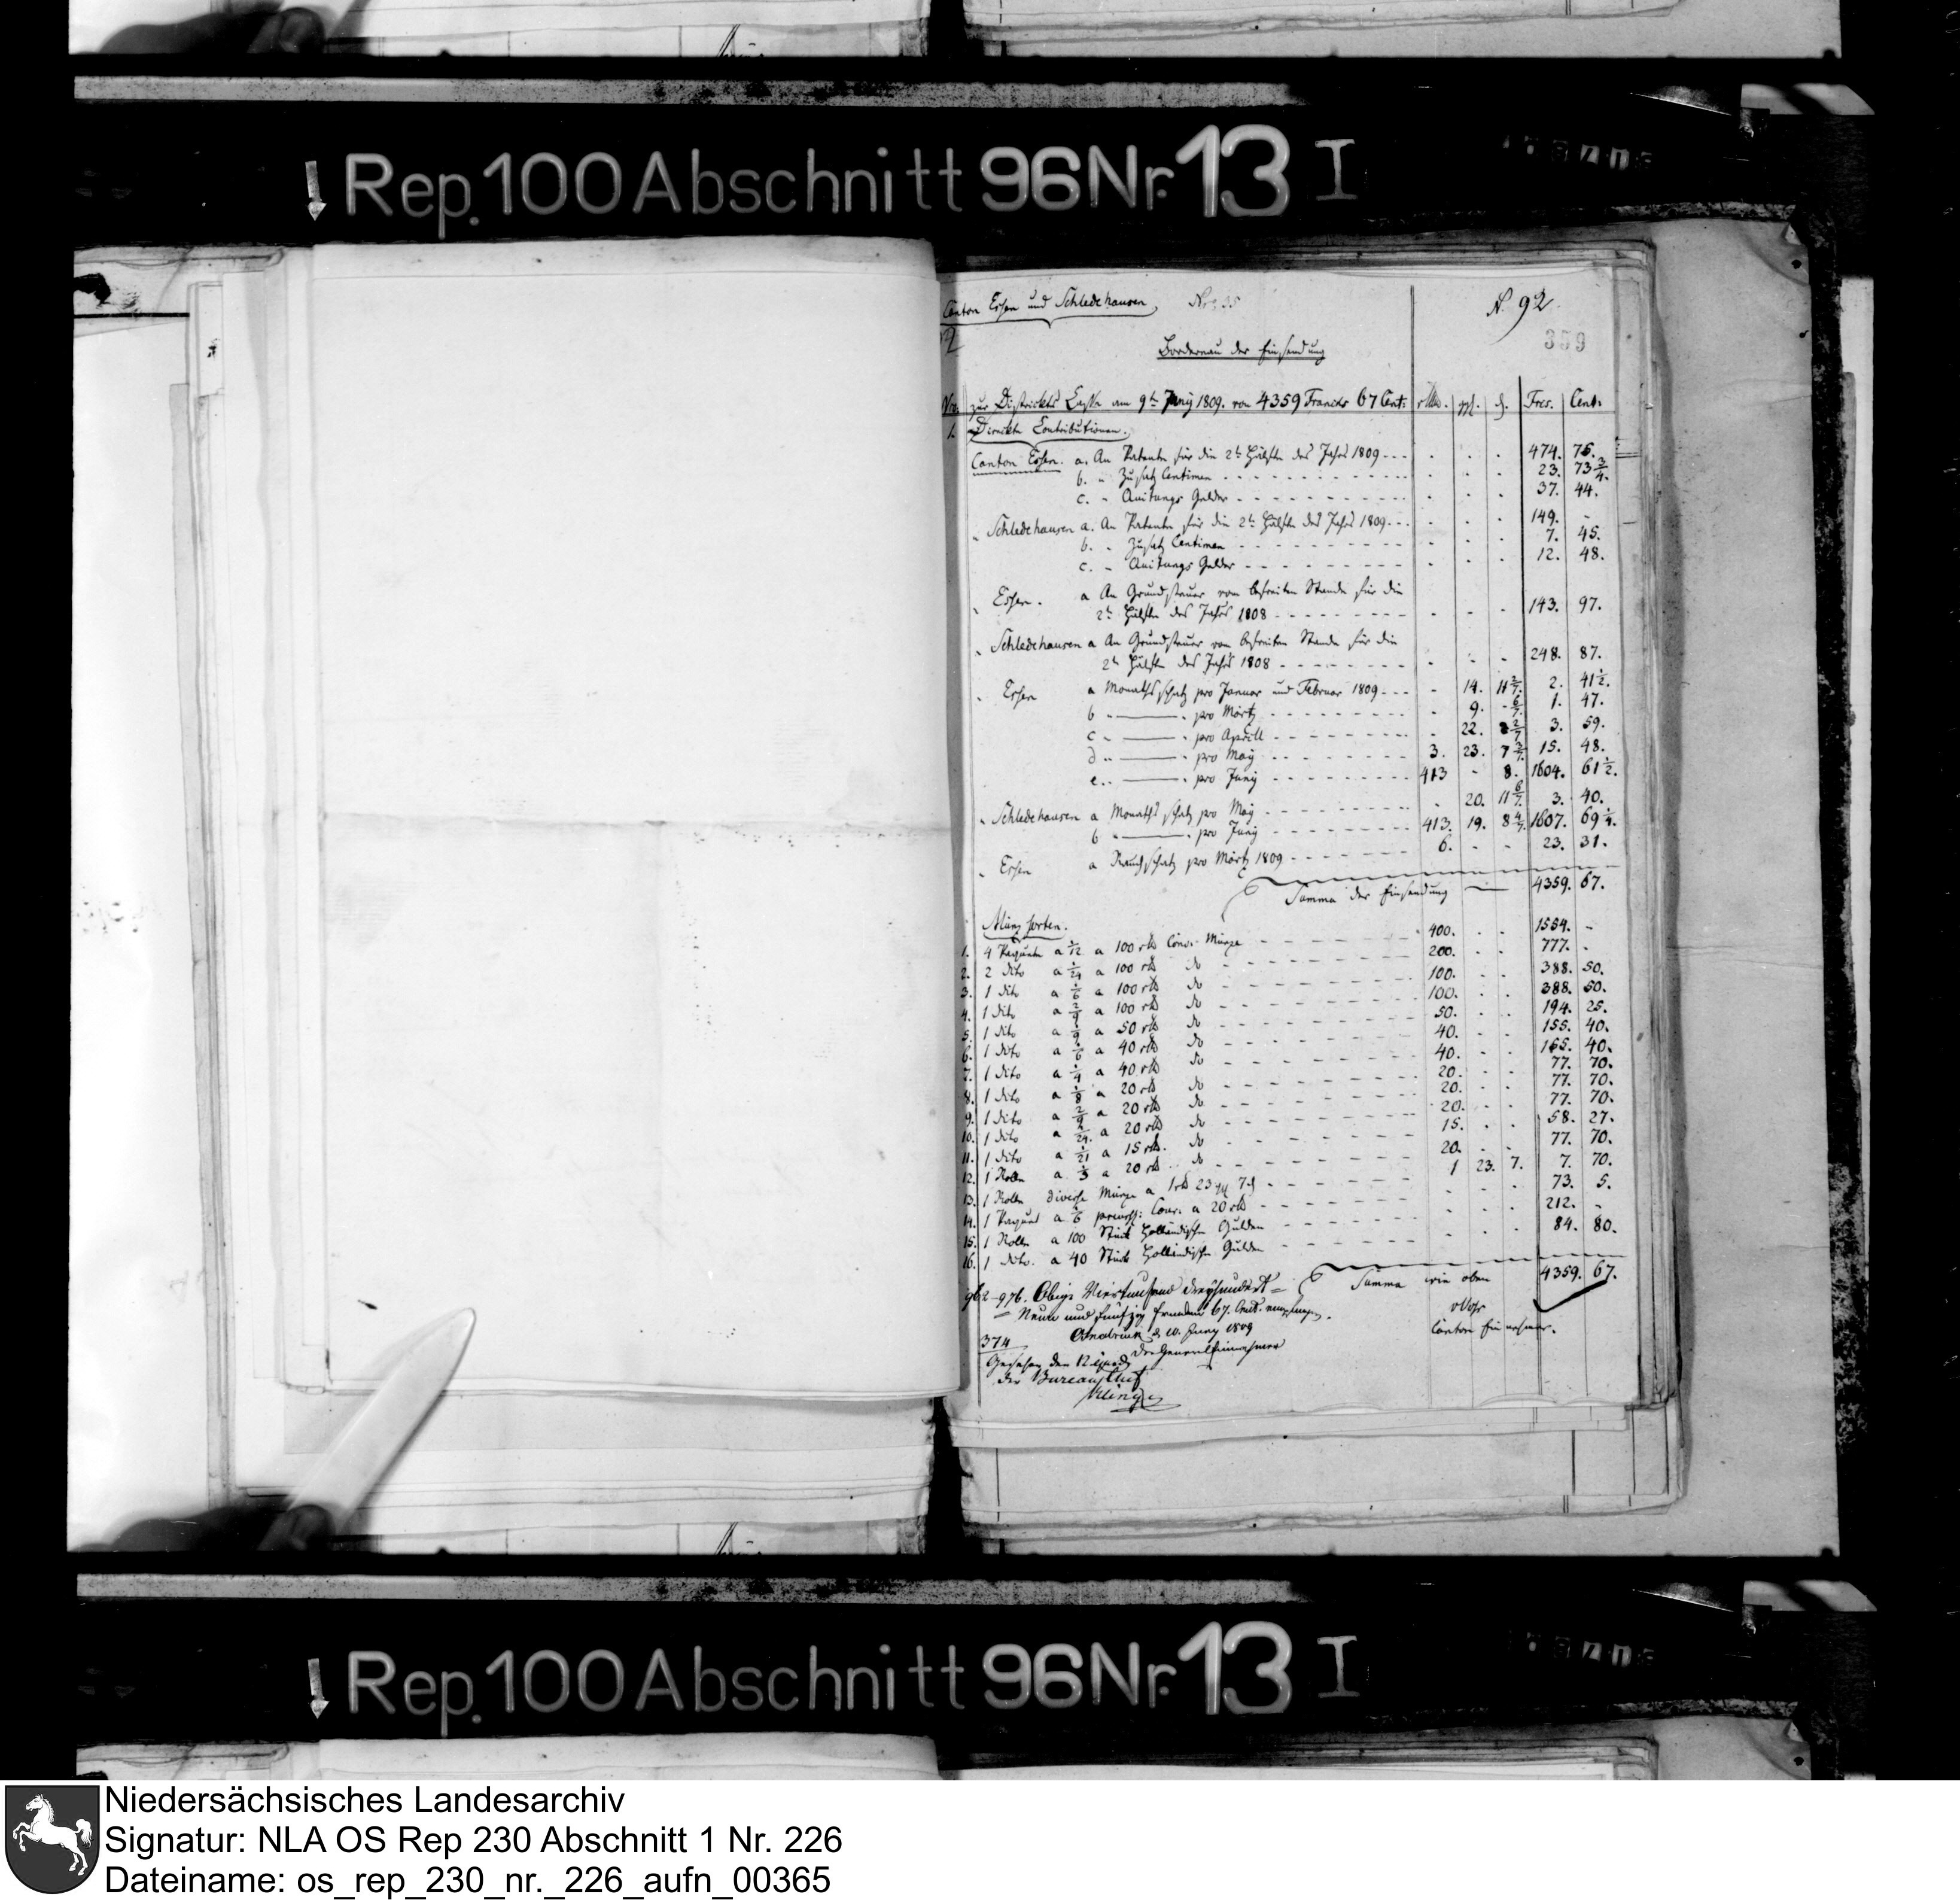 Rep. 100 Abschnitt 96 Nr. 13 I
Canton Essen und Schledehausen
N. 92
359
Bordereau der Einsendung
Nro. zur Districkts Casse am 9ten Juny 1809. von 4359 Francs 67 Cent: rthlr. ggl. d. Frcs. Cent:
1. Direckte Contributionen.
Canton Essen. a. An Patente für die 2te Hälfte des Jahrs 1809 - - - . . . 474. 75.
b. " Zusatz Centimen - - - . . . 23. 73 3/4.
c. " Quitungs Gelder - - - . . . 37. 44.
" Schledehausen a. An Patente für die 2te Hälfte des Jahrs 1809 - - - . . . 149. -
b. " Zusatz Centimen - - - . . . 7. 45.
c. " Quitungs Gelder - - - . . . 12. 48.
" Essen. a An Grundsteuer vom befreiten Stande für die
2te Hälfte des Jahrs 1808 - - - . - - 143. 97.
" Schledehausen a An Grundsteuer vom befreiten Stande für die
2te Hälfte des Jahrs 1808 - - - . - - 248. 87.
" Essen a Monaths schatz pro Januar und Februar 1809 - - - - 14. 11 2. 41 1/2.
b " — " pro Märtz - - - . 9. - 6/7. 1. 47.
c " — " pro Aprill - - - . 22. 2/7 3. 59.
d " — " pro May - - - 3. 23. 7 15. 48.
e " — " pro Juny - - - 413 - 8. 1604. 61 1/2.
" Schledehausen a Monaths schatz pro May - - - . 20. 11 6/7. 3. 40.
b " — " pro Juny - - - 413. 19. 8 4/7. 1607. 69
" Essen a Rauchschatz pro Märtz 1809 - - - 6. - - 23. 31.
Summa der Einsendung — 4359. 67.
Münz sorten.
1. 4 Paquete a 1/12 a 100 rth Conv: Münze - - - 400. . . 1554. -
2. 2 dito a 1/24 a 100 rth do - - - 200. . . 777. -
3. 1 dito a 1/6 a 100 rth do - - - 100. . . 388. 50.
4. 1 dito a 2/9 a 100 rth do - - - 100. . . 388. 50.
5. 1 dito a a 50 rth do - - - 50. . . 194. 25.
6. 1 dito a 1/6 a 40 rth do - - - 40. . . 155. 40.
7. 1 dito a a 40 rth do - - - 40. . . 155. 40.
8. 1 dito a 1/8 a 20 rth do - - - 20. . . 77. 70.
9. 1 dito a 2/9 a 20 rth do - - - 20. . . 77. 70.
10. 1 dito a a 20 rth do - - - 20. . . 77. 70.
11. 1 dito a 1/21 a 15 rth. do - - - 15. . . 58. 27.
12. 1 Rolle a 1/3 a 20 rth do - - - 20. . . 77. 70.
13. 1 Rolle diverse Münze a 1 rth 23 ggl 7 d - - - 1 23. 7. 7. 70.
14. 1 Paquet a 1/6 preuss: Cour: a 20 rth - - - . . . 73. 5.
15. 1 Rolle a 100 Stück Holländische Gulden - - - . . . 212. -
16. 1 dito. a 40 Stück Holländische Gulden - - - . . . 84. 80.
Summa wie oben 4359. 67.
962–976. Obige Viertausend dreyhundert =
= Neun und fünfzig Franken 67. Cent. empfangen.
Canton Einnehmer.
374 Osnabrück d. 10. Juny 1809
der GeneralEinnehmer
Gesehen den 12
der Bureau Chef
Niedersächsisches Landesarchiv
Signatur: NLA OS Rep 230 Abschnitt 1 Nr. 226
Dateiname: os_rep_230_nr._226_aufn_00365
Rep. 100 Abschnitt 96 Nr. 13 I